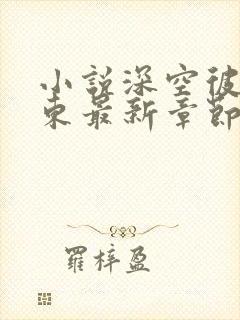 小說深空彼
東最新章節
羅梓盈